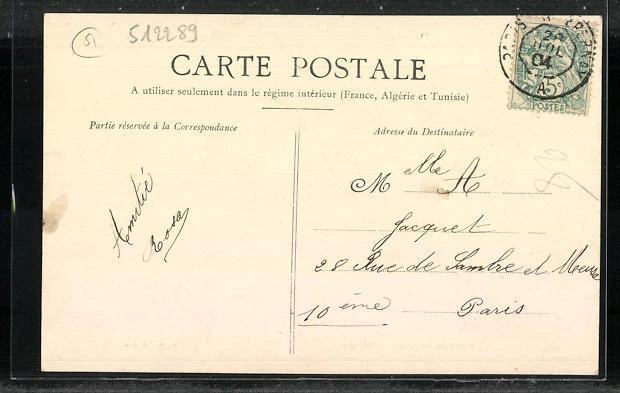 51
512289
CARTE POSTALE
A utiliser seulement dans le régime intérieur (France, Algérie et Tunisie)
Partie réservée à la Correspondance
Adresse du Destinataire
Amitié
Rosa
Melle A
Jacquet
28 Rue de Sambre et Meuse
10 ème Paris
PARIS
POSTES